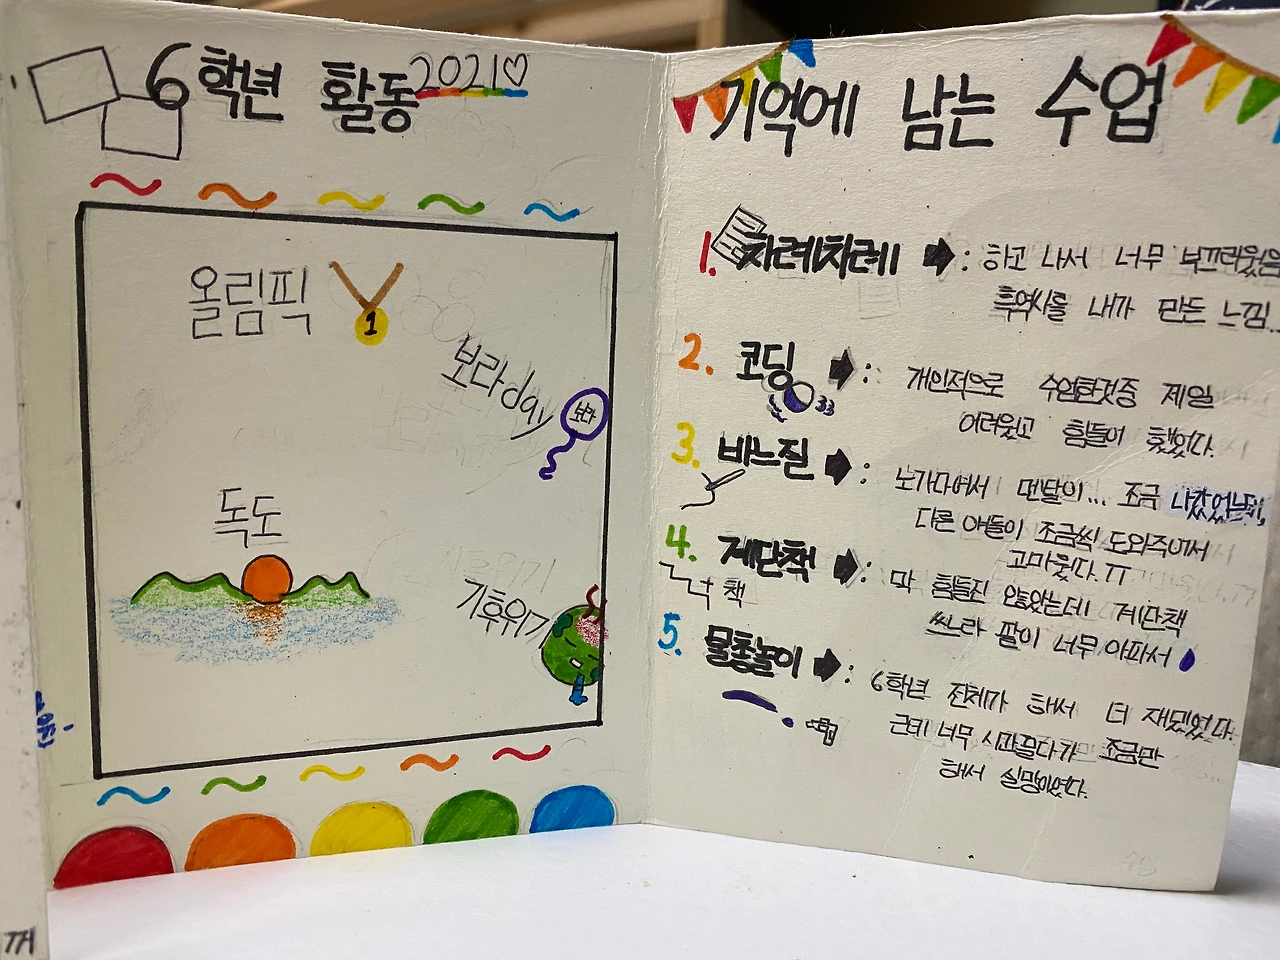 6학년 활동 2021♡
올림픽
1
보라day
보라
독도
기후위기
기억에 남는 수업
1. 차례차례 ➡ : 하고 나서 너무 부끄러웠음
흑역사를 내가 만든 느낌...
2. 코딩 ➡ : 개인적으로 수업한것중 제일
어려웠고 힘들어 했었다.
3. 바느질 ➡ : 노가다여서 멘탈이... 조금 나갔었는데,
다른 애들이 조금씩 도와주어서
고마웠다.ㅠㅠ
4. 계단책 ➡ : 막 힘들진 않았는데 계단책
책
쓰느라 팔이 너무 아파서
5. 물총놀이 ➡ : 6학년 전체가 해서 더 재밌었다.
근데 너무 시간끌다가 조금만
해서 실망이였다.
수업